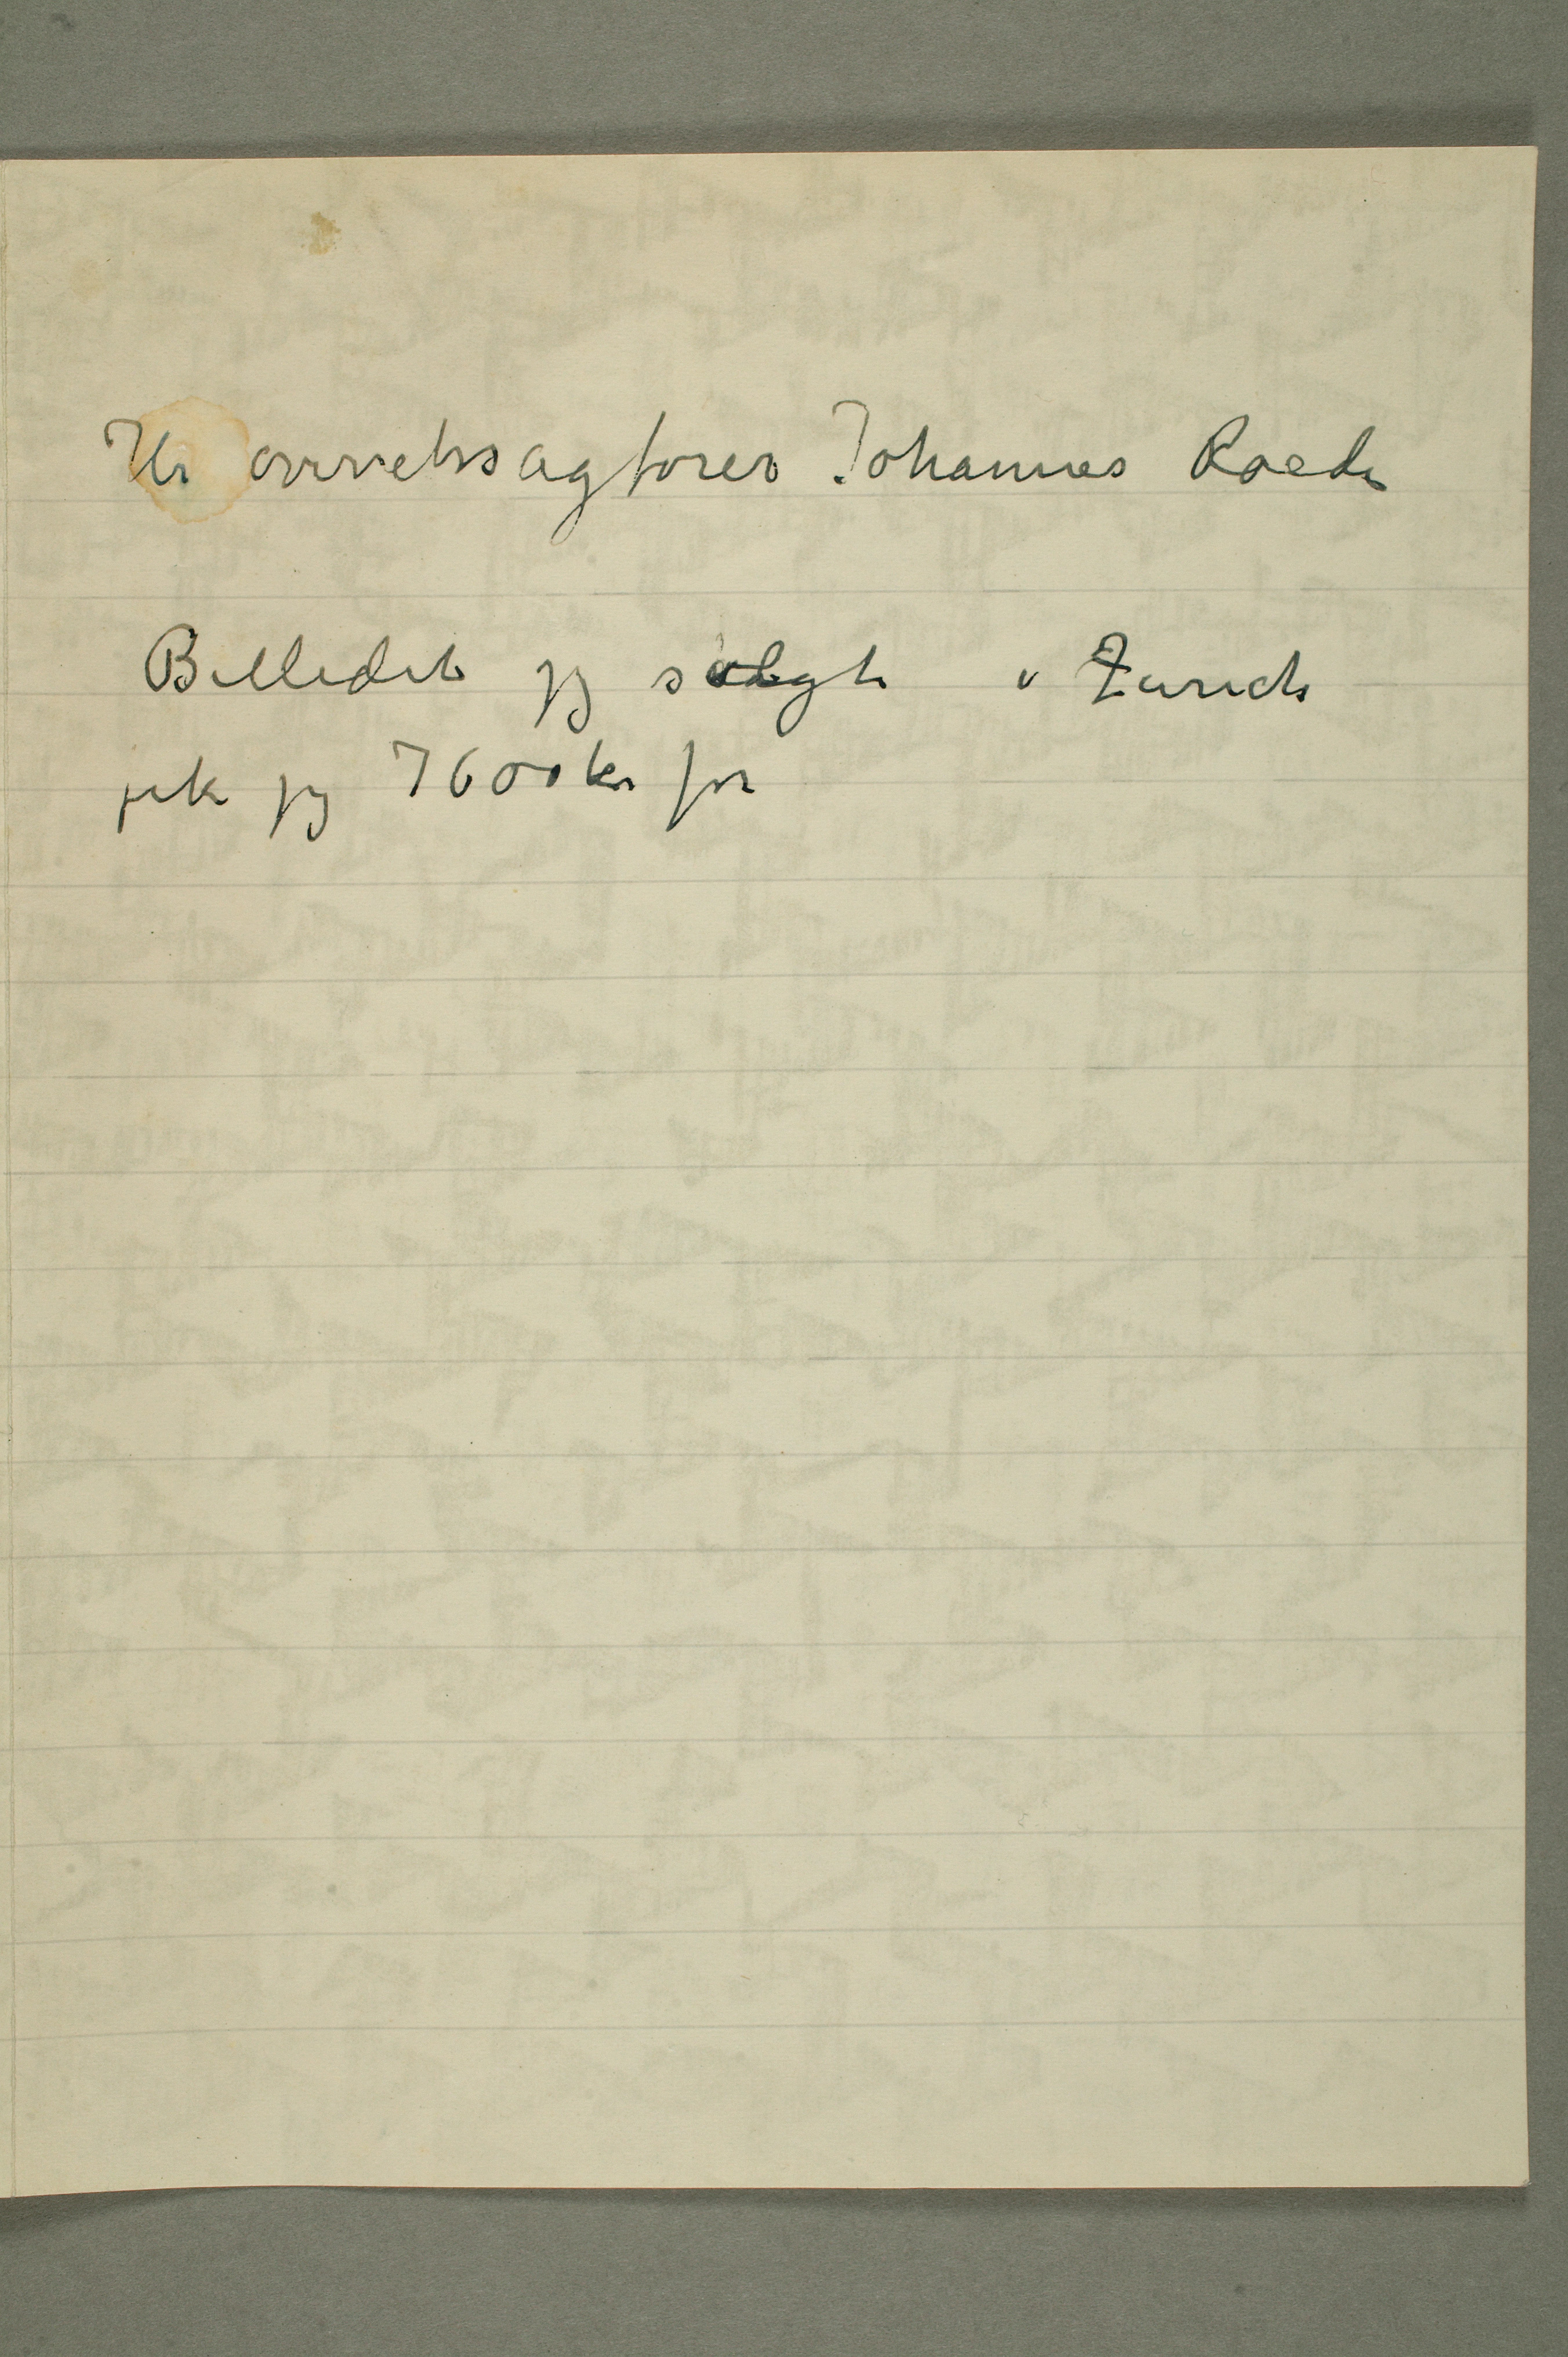 Hr overretssagfører Johannes Roede
Billedet jeg solgte i Zürich
fik jeg 7600 kr for